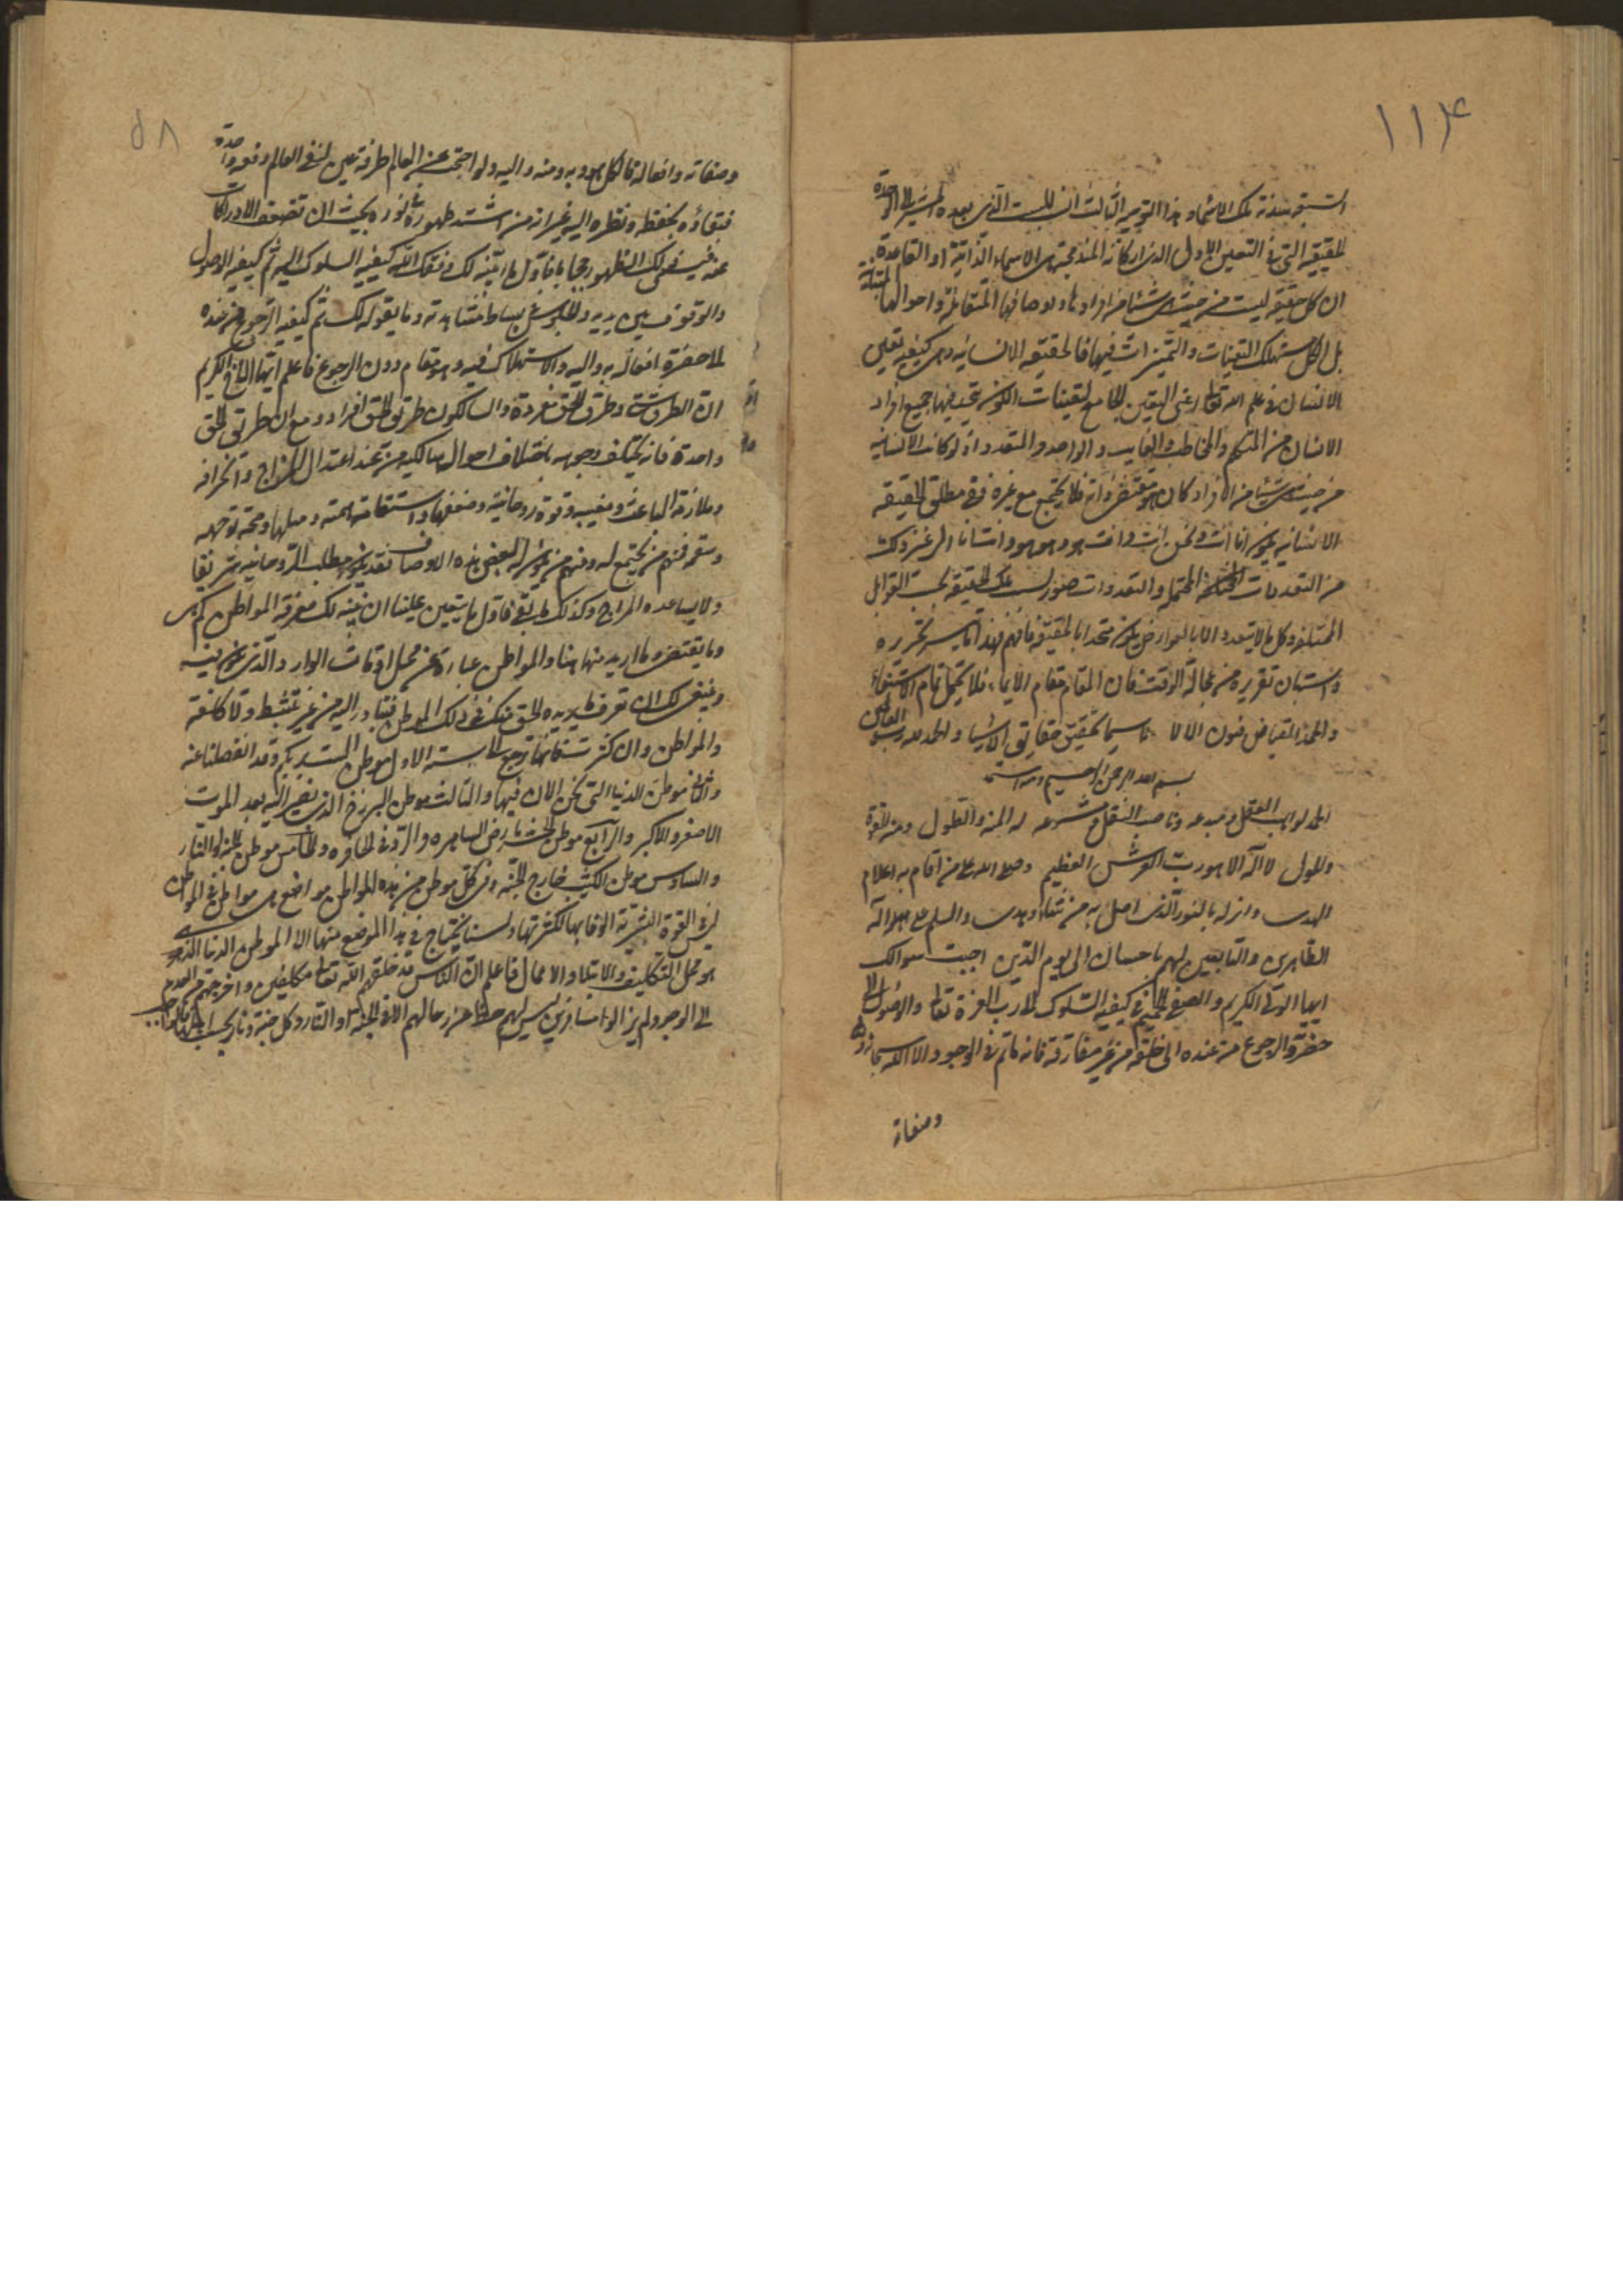 ١١٤
الحقيقية التي في التعين الاول الذي اركانه المندمجة هي الاسماء الذاتية او القاعدة
ان كل حقيقة ليست من حيث هي شيئا من افرادها واوصافها المتقابلة واحوالها
بل الكل مستهلك التعينات والتميزات فيها فالحقيقة الانسانية وهي كيفية تعين
الانسان في علم الله تعالى اعني التعين الجامع لتعينات الكون تتحد فيها جميع افراد
الانسان من المتكلم والمخاطب والغايب والواحد والمتعدد اذ لو كانت الانسانية
من حيث هي شيئا من الافراد كان هو مقتضى ذاته فلا يجتمع مع غيره ففي مطلق الحقيقة
الانسانية يكون انا انت ونحن انت وانت هو وهو هو وانت انا الى غير ذلك
من التعددات المختلفة المحتملة والتعددات صور نسب تلك الحقيقة بحسب القوابل
المختلفة وكل ما لا يتعدد الا بالعوارض يكون متحدا بالحقيقة فافهم فهذا ما تيسر تحريره
واستبان تقريره من عجالة الوقت فان المقام مقام الايماء فلا يحتمل تمام الاستيفاء
والحمد لله الفياض فنون الالاء لا سيما تحقيق حقايق الاشياء والحمد لله رب العالمين
بسم الله الرحمن الرحيم وبه نستعين
الحمد لواهب العقل ومبدعه وناصب النقل ومشرعه له المنة والطول ومنه القوة
والحول لا اله الا هو رب العرش العظيم وصلى الله على من اقام به اعلام
الهدى وانزله بالنور الذي اضل به من شاء وهدى والسلم على اله
الطاهرين والتابعين لهم باحسان الى يوم الدين اجبت سوالك
ايها الولي الكريم والصفي الحميم في كيفية السلوك الى رب العزة تعالى والوصول الى
حضرته والرجوع من عنده الى خلقه من غير مفارقة فانه ما ثم في الوجود الا الله سبحانه
وصفاته
٥٨
وصفاته وافعاله فالكل هو وبه ومنه واليه ولو احتجب عن العالم طرفة عين لفني العالم دفعة واحدة
فبقاؤه بحفظه ونظره اليه غير انه من اشتد ظهوره في نوره بحيث ان تضعف الادراكات
عنه فيسمى ذلك الظهور حجابا فاول ما ابينه لك وفقك الله كيفية السلوك اليه ثم كيفية الوصول
والوقوف بين يديه والجلوس في بساط مشاهدته وما يقوله لك ثم كيفية الرجوع من عنده
الى حضرة افعاله به واليه والاستهلاك فيه وهو مقام دون الرجوع فاعلم ايها الاخ الكريم
ان الطرق شتى وطريق الحق مفردة والسالكون طريق الحق افراد ومع ان طريق الحق
واحدة فانه يختلف وجوهه باختلاف احوال سالكيه من عند اعتدال المزاج وانحرافه
وملازمة الباعث ومغيبه وقوة روحانيته وضعفها واستقامة همته وميلها وصحة توجهه
وسقمه فمنهم من يجتمع له ومنهم من يكون له بعض هذه الاوصاف فقد يكون مطلب الروحانية شريفا
ولا يساعده المزاج وكذلك ما بقي فاول ما يتعين علينا ان نبينه لك معرفة المواطن كم هي
وما يقتضي ما اريد منها هنا والمواطن عبارة عن محل اوقات الوارد والذي تكون فيه
وينبغي لك ان تعرف ما يريده الحق منك في ذلك الموطن فتبادر اليه من غير تثبط ولا كلفة
والمواطن وان كثرت فانها ترجع الى ستة الاول موطن الست بربكم وقد انفصلنا عنه
والثاني موطن الدنيا التي نحن الان فيها والثالث موطن البرزخ الذي نصير اليه بعد الموت
الاصغر والاكبر والرابع موطن الحشر بارض الساهرة والرد في الحافرة والخامس موطن الجنة والنار
والسادس موطن الكثيب خارج الجنة وفي كل موطن من هذه المواطن مواضع هي مواطن في المواطن
ليس في القوة البشرية الوفا بها لكثرتها ولسنا نحتاج في هذا الموضع منها الا الى موطن الدنيا الذي
هو محل التكليف والابتلا والاعمال فاعلم ان الناس قد خلقهم الله تعالى مكلفين واخرجهم من العدم
الى الوجود لم يزالوا مسافرين ليس لهم حط عن رحالهم الا في الجنة او النار وكل جنة ونار بحسب اهلها